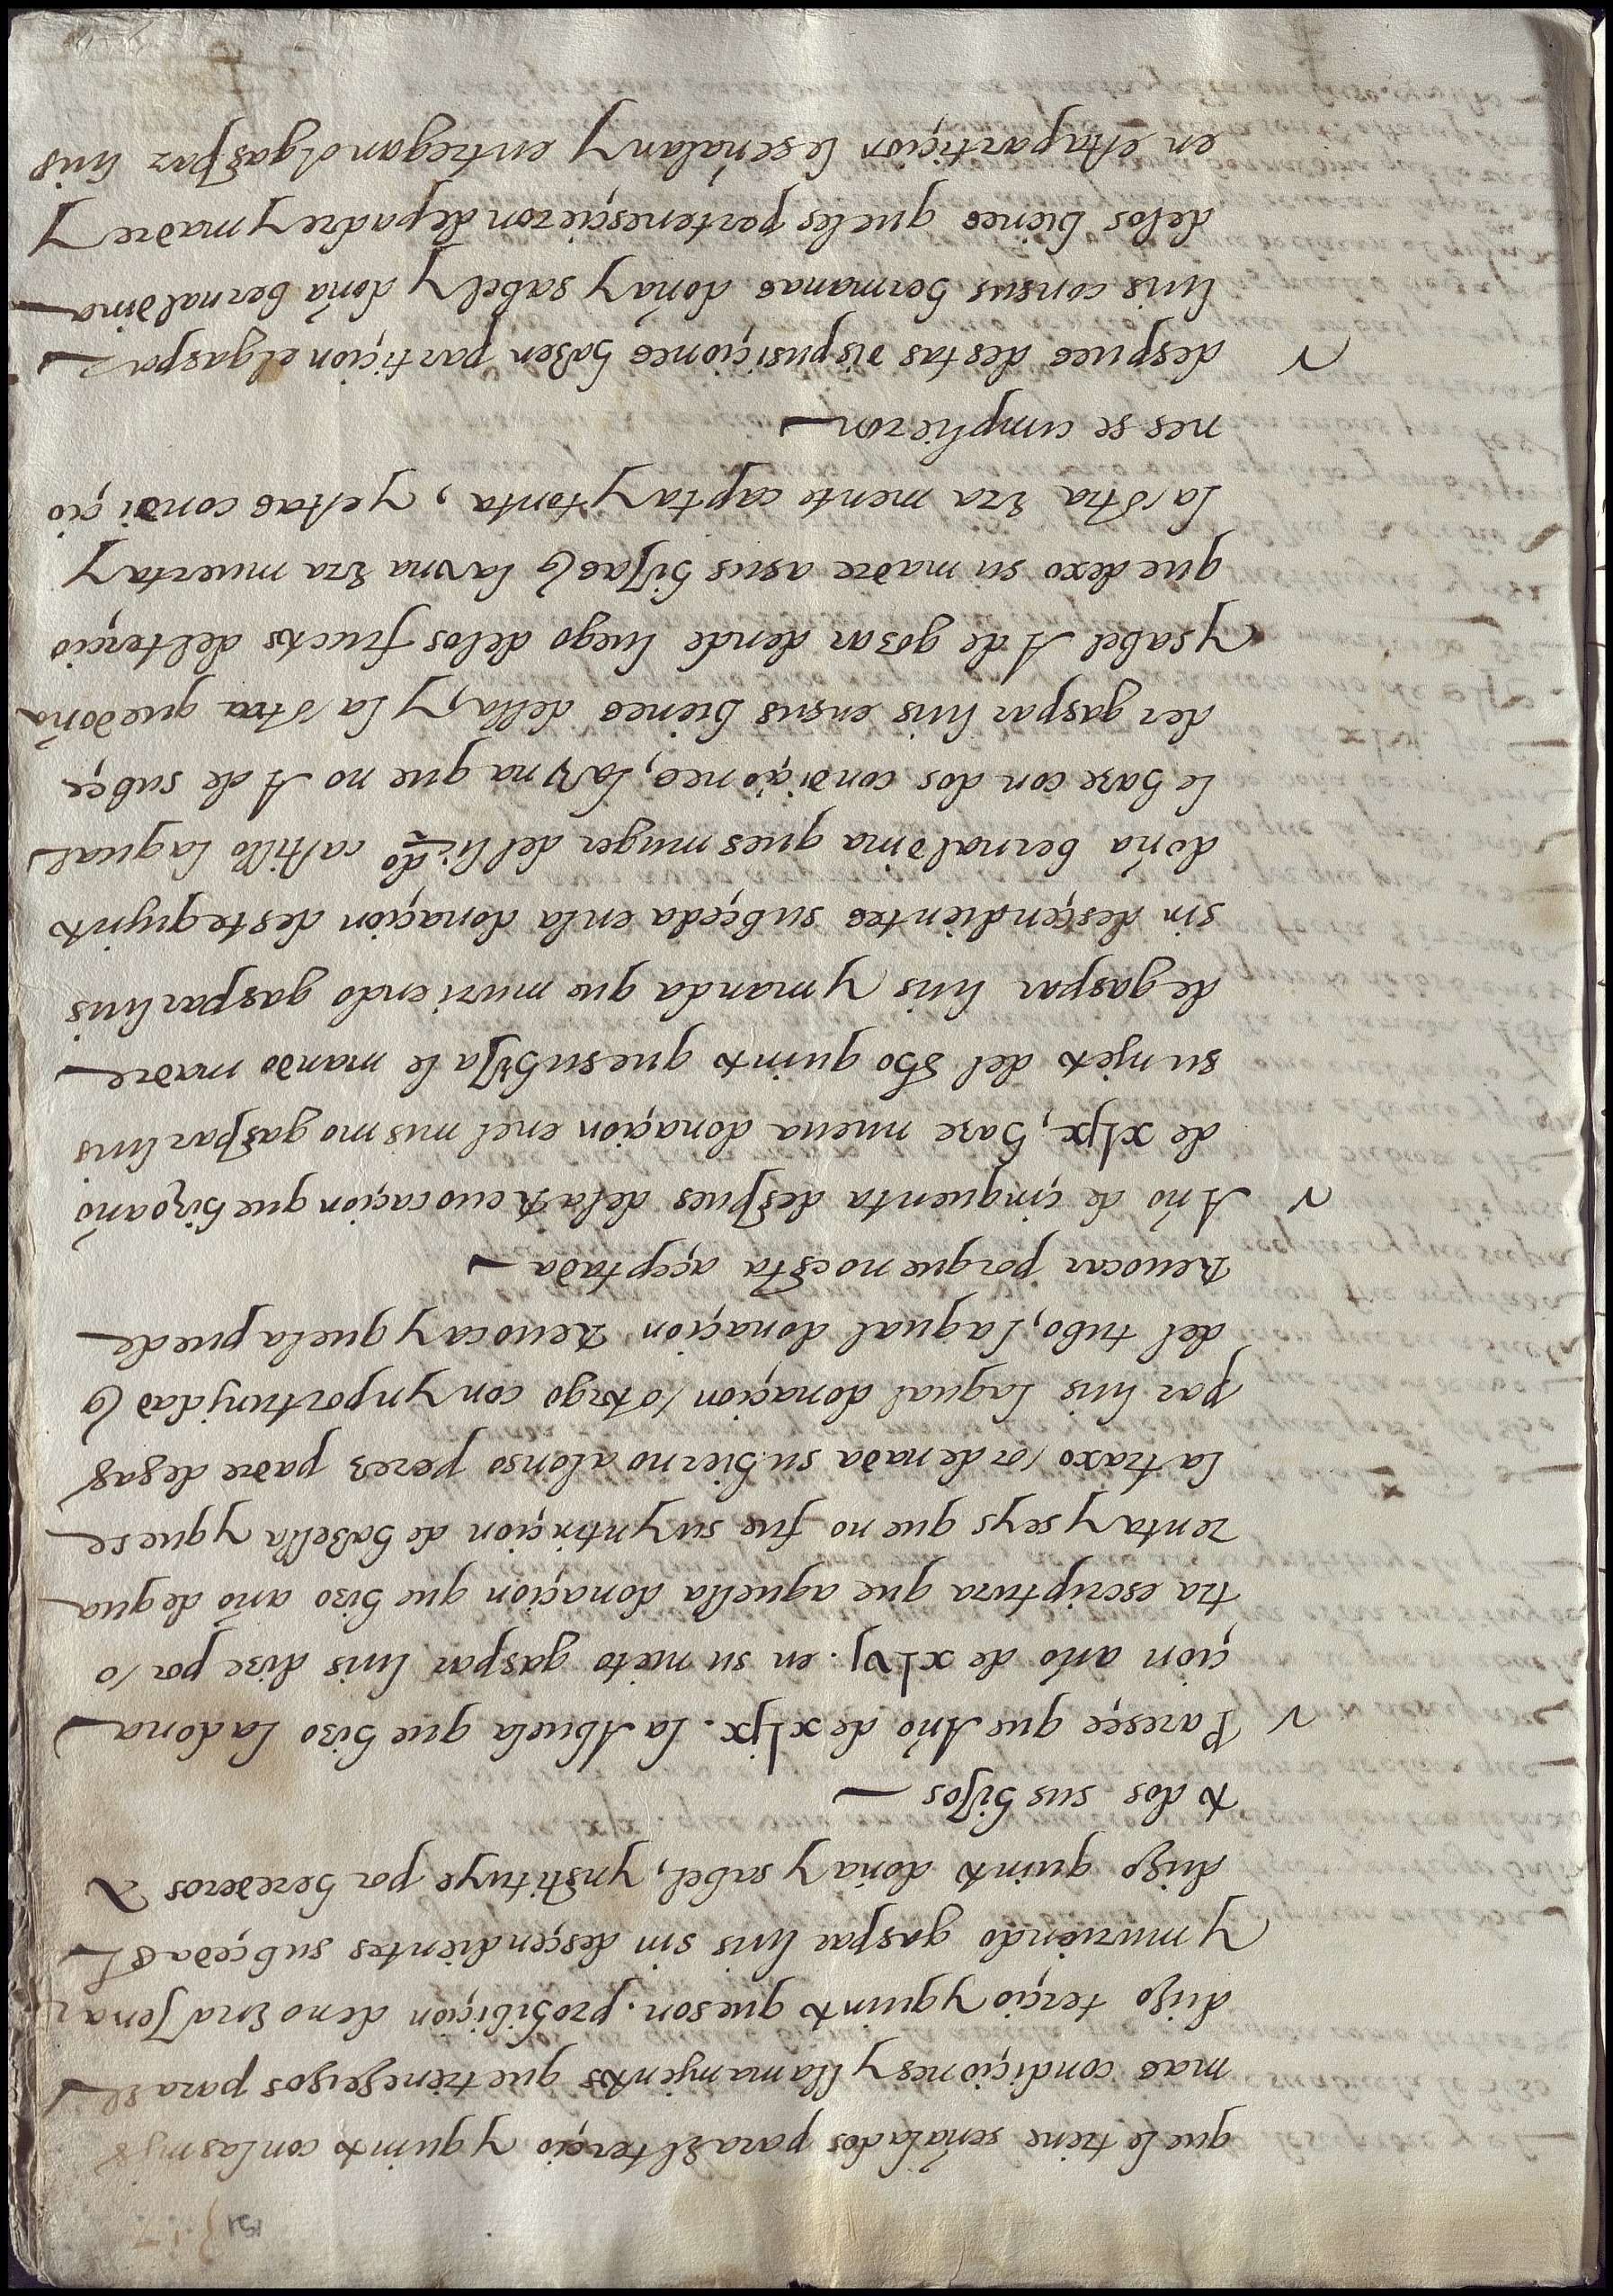 151
que le tiene señalados para el terçio y quinto con las mys
mas condiçiones y llamamyentos que tiene hechos para el
dicho terçio y quinto que son. prohibiçion de no enajenar
y muriendo gaspar luis sin desçendientes subçeda el
dicho quinto doña ysabel, ynstituye por herederos a
todos sus hijos
Paresçe que Año de xljx. la Abuela que hizo la dona
çion año de xlvj. en su nieto gaspar luis dize por o
tra escriptura que aquella donaçion que hizo año de qua
renta y seys que no fue su yntinçion de hazella y que se
la traxo ordenada su hierno alonso perez padre de gas
par luis la qual donaçion otorgo con ynportunjdad q
del tubo, la qual donaçion Reuoca y que la puede
Reuocar porque no esta açeptada
Año de çinquenta despues de la Reuocaçion que hizo año
de xljx, haze nueua donaçion en el mismo gaspar luis
su njeto del dho quinto que su hija le mando madre
de gaspar luis y manda que muriendo gaspar luis
sin desçendientes subçeda en la donaçion deste qujnto
doña bernaldina ques muger del liçdo castillo la qual
le haze con dos condiçiones, la vna que no A de subçe
der gaspar luis en sus bienes della, y la otra que doña
ysabel A de gozar dende luego de los fructos del terçio
que dexo su madre a sus hijas q la vna era muerta y
la otra era mente capta y tonta, y estas condiçio
nes se cumplieron
despues destas dispusiçiones hazen partiçion el gaspar
luis con sus hermanas doña ysabel y doña bernaldina
de los bienes que les pertenesçieron de padre y madre y
en esta partiçion le señalan y entregan al gaspar luis